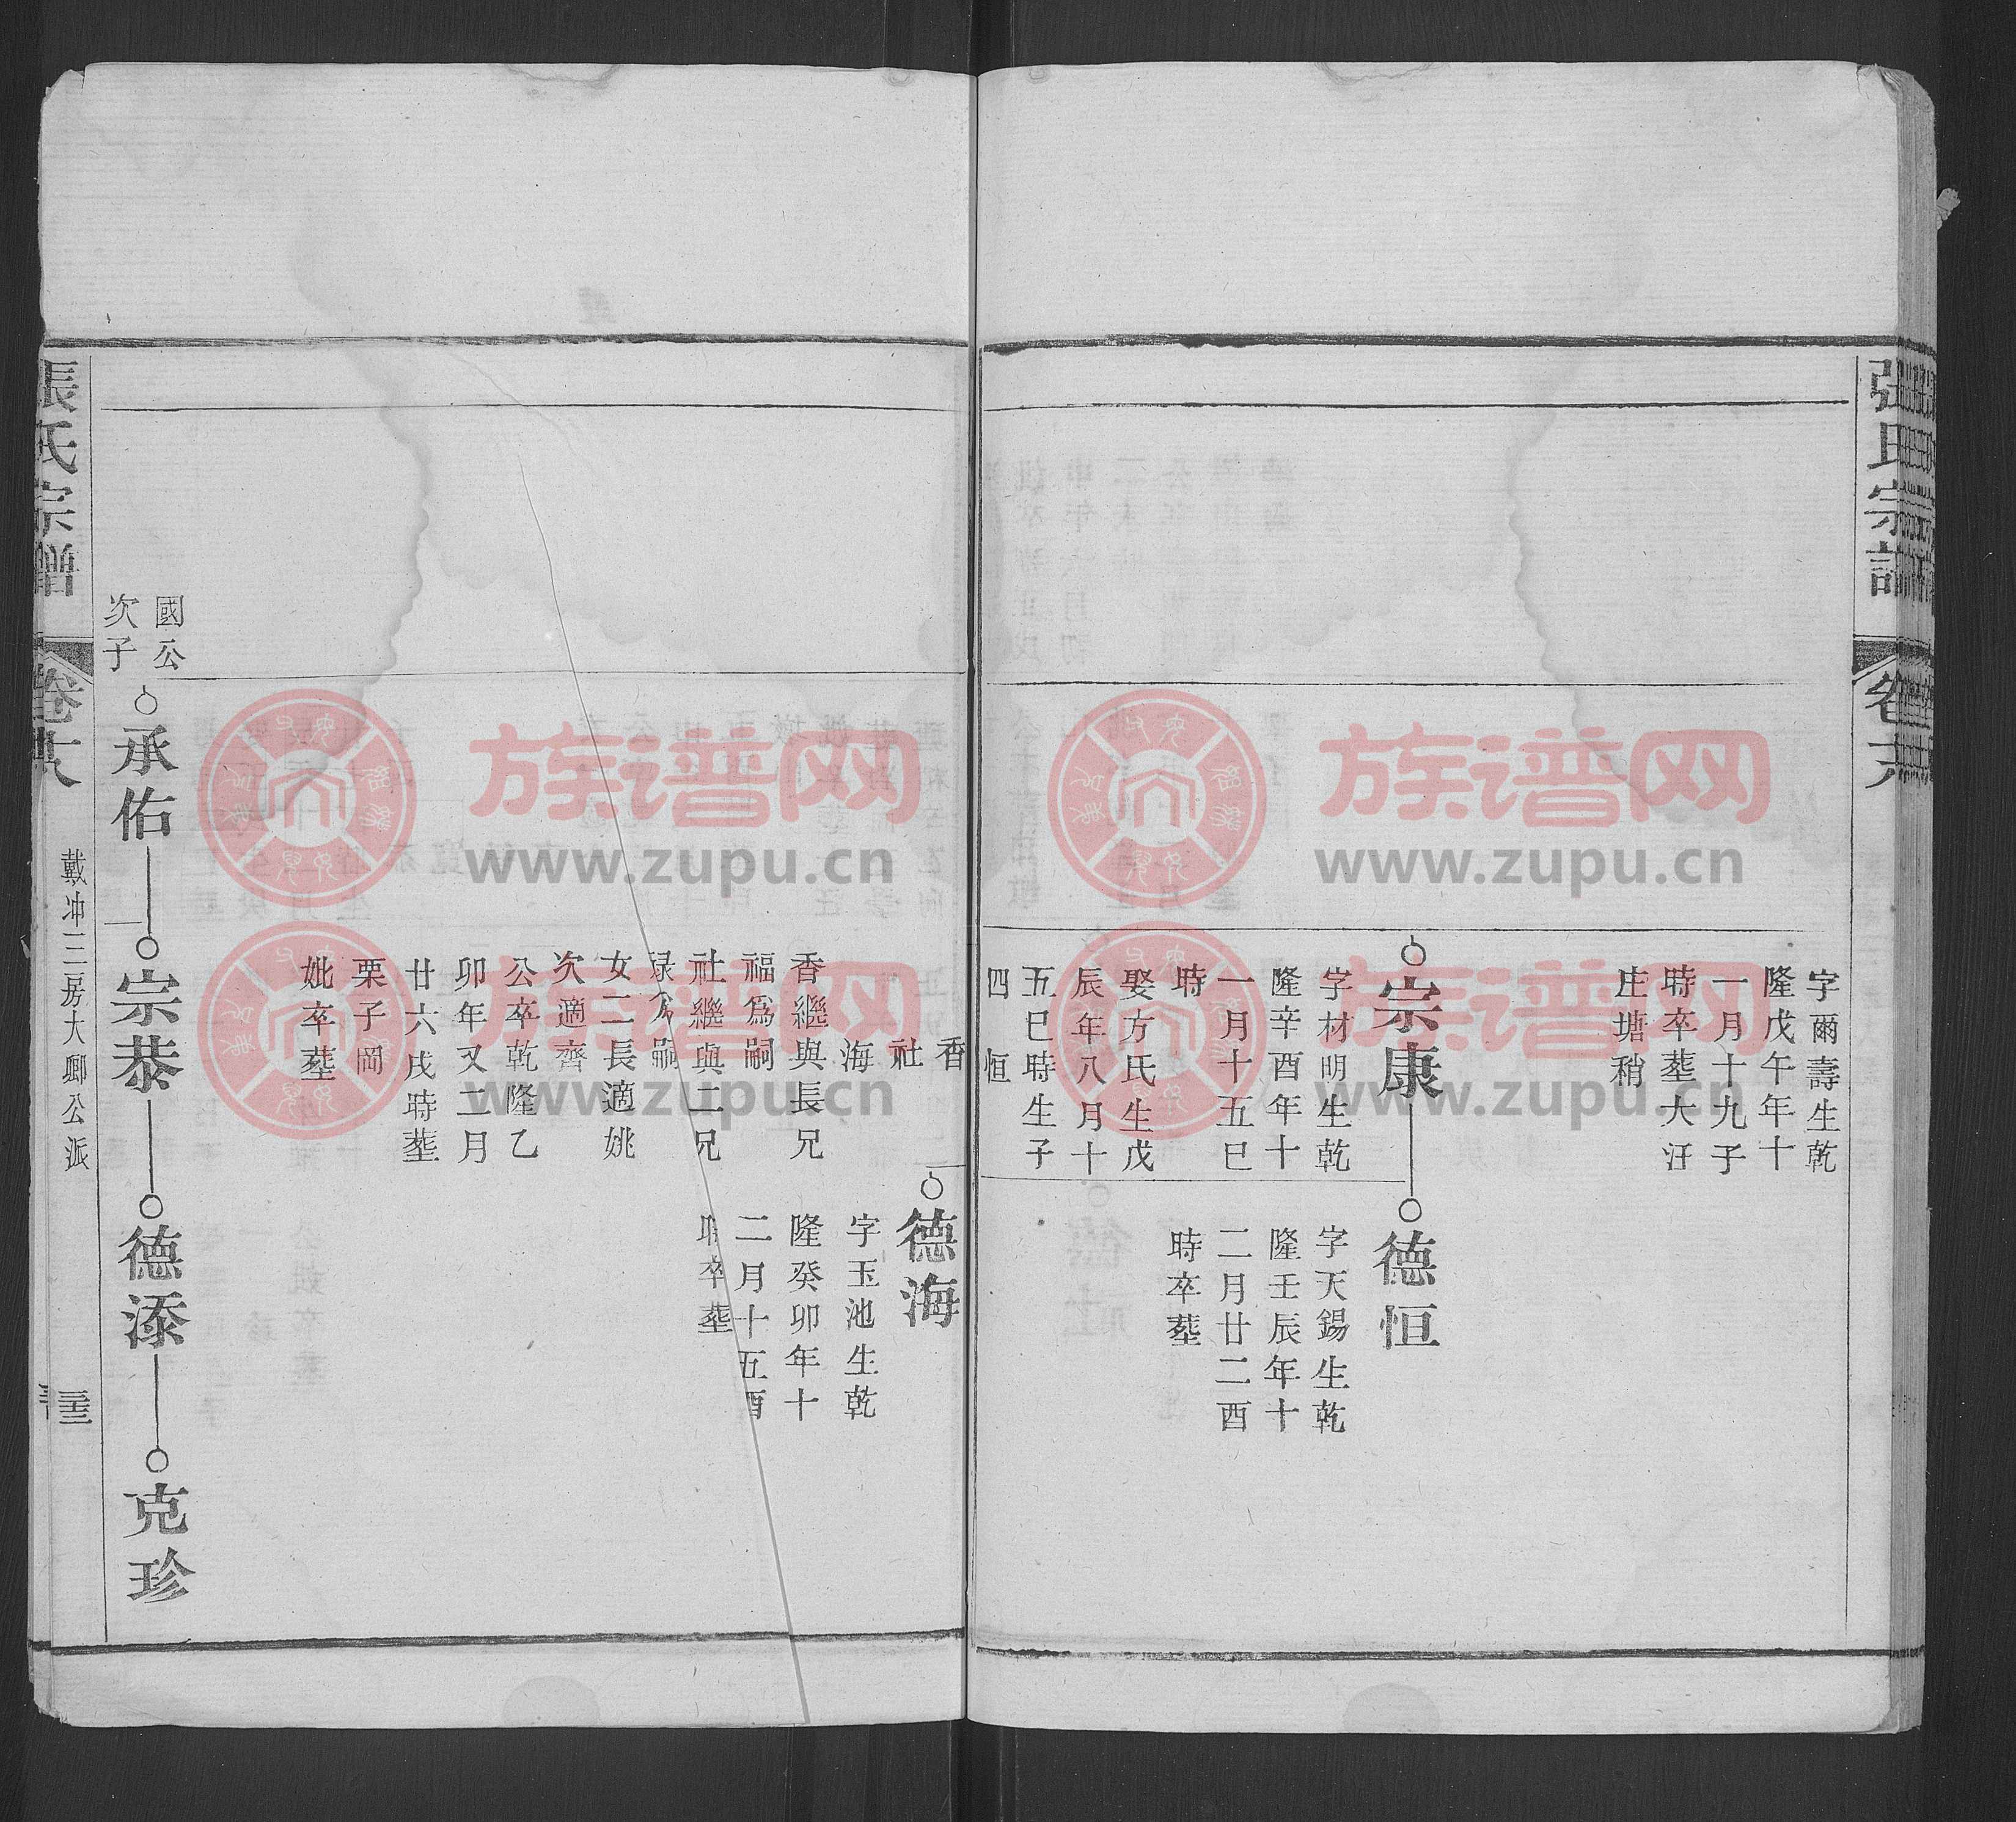 張氏宗譜
卷六
字爾壽生乾
隆戊午年十
一月十九子
時卒塟大汪
庄塘稍
宗康
字材明生乾
隆辛酉年十
一月十五巳
時
娶方氏生戊
辰年八月十
五巳時生子
四 恒
德恒
字天錫生乾
隆壬辰年十
二月廿二酉
時卒塟
香
社
海
香繼與長兄
福爲嗣
社繼與二兄
祿爲嗣
女二長適姚
次適齊
公卒乾隆乙
卯年又二月
廿六戌時塟
栗子岡
妣卒塟
德海
字玉池生乾
隆癸卯年十
二月十五酉
時卒塟
國公
次子
承佑
宗恭
德添
克珍
張氏宗譜
戴冲三房大卿公派
族谱网
www.zupu.cn
族谱网
www.zupu.cn
www.zupu.cn
www.zupu.cn